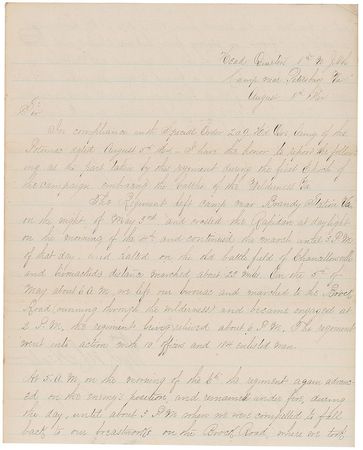 Head Quarters 1st
Camp near Petersburg Va
August 8th
Sir
In compliance with Special Order 209 Hd Qrs Army of the
Potomac dated August 5th I have the honor to report the follow
ing as the part taken by this regiment during the first Epoch of
the campaign embracing the battle of the Wilderness
The Regiment left camp near Brandy Station Va
on the night of May 3rd and crossed the Rapidan at daylight
on the morning of the 4th and continued the march until 3 P.M.
of that day and halted on the old battle field of Chancellorsville
and bivouacked distance marched about 22 miles. On the 5th of
May about 6 A.M. we left our bivouac and marched to the Brock
Road (running through the wilderness) and became engaged at
2 P.M. the regiment being relieved about 6 P.M. The regiment
went into action with 10 officers and 184 enlisted men.
At 5 A.M. on the morning of the 6th the regiment again advanc
ed on the enemy's position and remained under fire, during
the day, until about 3 P.M. when we were compelled to fall
back to our breastworks on the Brock Road, where we took